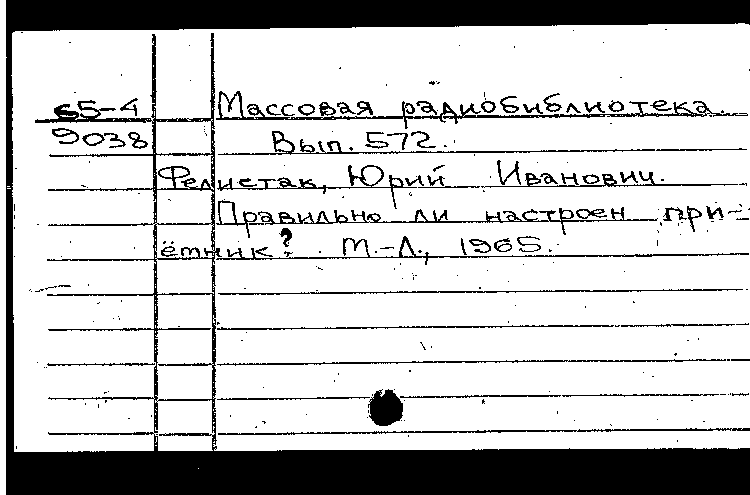 65-4 Массовая радиобиблиотека.
9038 Вып. 572.
Фелистак, Юрий Иванович.
Правильно ли настроен при-
ёмник? М.-Л., 1965.